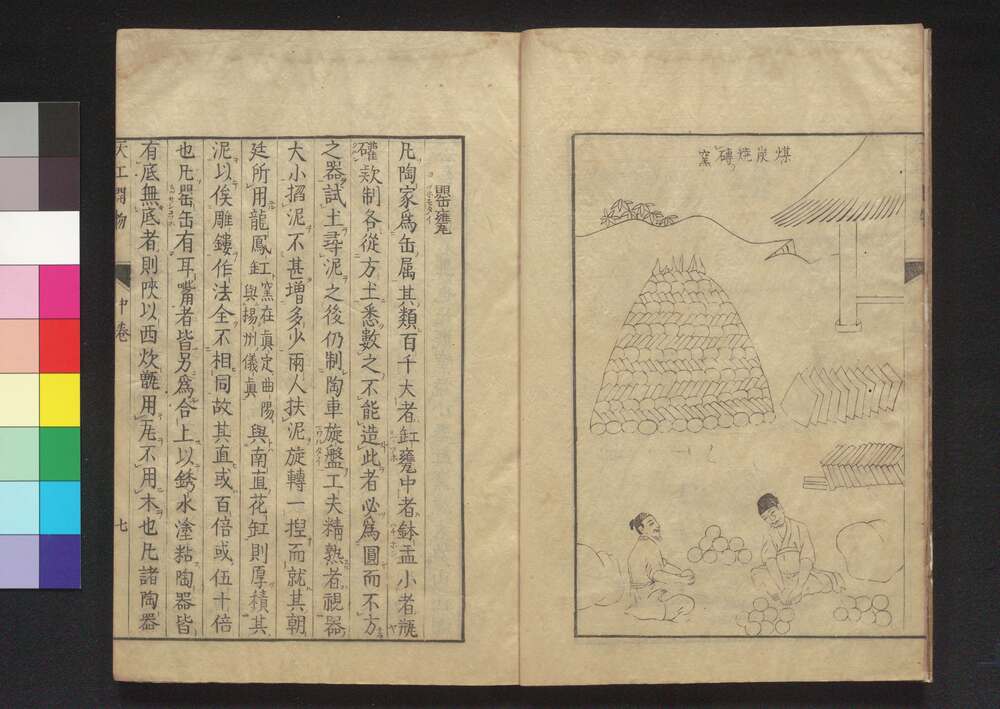 煤炭燒磚窯
罌甕
凡陶家為缶属其類百千大者缸甕中者鉢盂小者瓶
礶款制各從方土悉數之不能造此者必為圓而不方
之器試土尋泥之後仍制陶車旋盤工夫精熟者視器
大小掐泥不甚增多少兩人扶泥旋轉一捏而就其朝
廷所用龍鳳缸窯在真定曲陽與揚州儀真與南直花缸則厚積其
泥以俟雕鏤作法全不相同故其直或百倍或伍十倍
也凡罌缶有耳嘴者皆另為合上以銹水塗粘陶器皆
有底無底者則陝以西炊甑用瓦不用木也凡諸陶器
天工開物 中卷 七